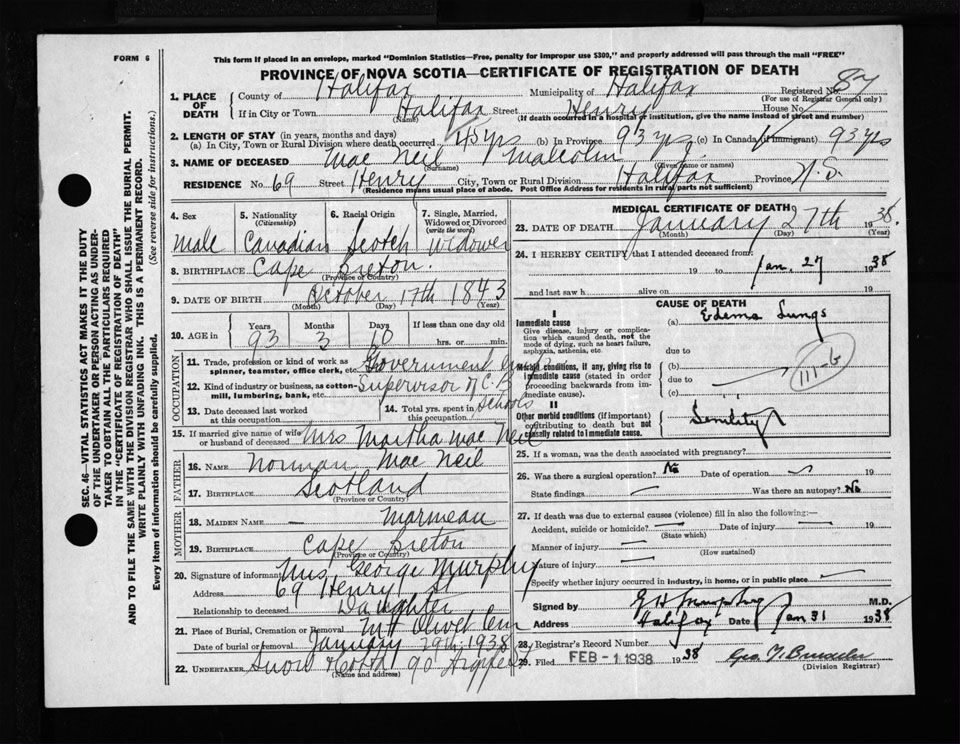 FORM 6
This form if placed in an envelope, marked "Dominion Statistics—Free, penalty for improper use $300," and properly addressed will pass through the mail "FREE"
PROVINCE OF NOVA SCOTIA—CERTIFICATE OF REGISTRATION OF DEATH
1. PLACE OF DEATH
County of Halifax Municipality of Halifax Registered No. 87
(For use of Registrar General only)
If in City or Town Halifax Street Henry House No.
(Name) (If death occurred in a hospital or institution, give the name instead of street and number)
2. LENGTH OF STAY (in years, months and days)
(a) In City, Town or Rural Division where death occurred 45 yrs (b) In Province 93 yrs (c) In Canada (if immigrant) 93 yrs
3. NAME OF DECEASED Mac Neil Malcolm J.
(Surname) (Given name or names)
RESIDENCE No. 69 Street Henry City, Town or Rural Division Halifax Province N.S.
(Residence means usual place of abode. Post Office Address for residents in rural parts not sufficient)
4. Sex
Male
5. Nationality (Citizenship)
Canadian
6. Racial Origin
Scotch
7. Single, Married, Widowed or Divorced (write the word)
Widower
8. BIRTHPLACE Cape Breton.
(Province or Country)
9. DATE OF BIRTH October 17th 1843
(Month) (Day) (Year)
10. AGE in
Years Months Days If less than one day old
93 3 10 hrs. or min.
OCCUPATION
11. Trade, profession or kind of work as spinner, teamster, office clerk, etc. Government
12. Kind of industry or business, as cotton-mill, lumbering, bank, etc. Supervisor of C.B. Schools
13. Date deceased last worked at this occupation
14. Total yrs. spent in this occupation
15. If married give name of wife or husband of deceased Mrs Martha Mac Neil
FATHER
16. NAME Norman Mac Neil
17. BIRTHPLACE Scotland
(Province or Country)
MOTHER
18. MAIDEN NAME — Marmeau
19. BIRTHPLACE Cape Breton
(Province or Country)
20. Signature of informant Mrs George Murphy
Address 69 Henry St
Relationship to deceased Daughter
21. Place of Burial, Cremation or Removal Mt Olivet Cem
Date of burial or removal January 29th 1938
22. UNDERTAKER Snow 90 Argyle St
(Name and address)
MEDICAL CERTIFICATE OF DEATH
23. DATE OF DEATH January 27th 1938.
(Month) (Day) (Year)
24. I HEREBY CERTIFY that I attended deceased from:
19 to Jan. 27 1938
and last saw h alive on 19
CAUSE OF DEATH
I
Immediate cause
Give disease, injury or complication which caused death, not the mode of dying, such as heart failure, asphyxia, asthenia, etc.
(a) Edema Lungs
due to
Morbid conditions, if any, giving rise to immediate cause (stated in order proceeding backwards from immediate cause).
(b)
due to
(c)
111-b
II
Other morbid conditions (if important) contributing to death but not causally related to immediate cause.
Senility
25. If a woman, was the death associated with pregnancy?
26. Was there a surgical operation? No Date of operation 19
State findings — Was there an autopsy? No
27. If death was due to external causes (violence) fill in also the following:—
Accident, suicide or homicide? — Date of injury — 19
(State which)
Manner of injury —
(How sustained)
Nature of injury —
Specify whether injury occurred in industry, in home, or in public place —
Signed by M.D.
Address Halifax Date Jan 31 1938
28. Registrar's Record Number
29. Filed FEB -1 1938 1938
(Division Registrar)
SEC. 46—VITAL STATISTICS ACT MAKES IT THE DUTY
OF THE UNDERTAKER OR PERSON ACTING AS UNDER-
TAKER TO OBTAIN ALL THE PARTICULARS REQUIRED
IN THE "CERTIFICATE OF REGISTRATION OF DEATH"
AND TO FILE THE SAME WITH THE DIVISION REGISTRAR WHO SHALL ISSUE THE BURIAL PERMIT.
WRITE PLAINLY WITH UNFADING INK. THIS IS A PERMANENT RECORD.
Every item of information should be carefully supplied. (See reverse side for instructions.)